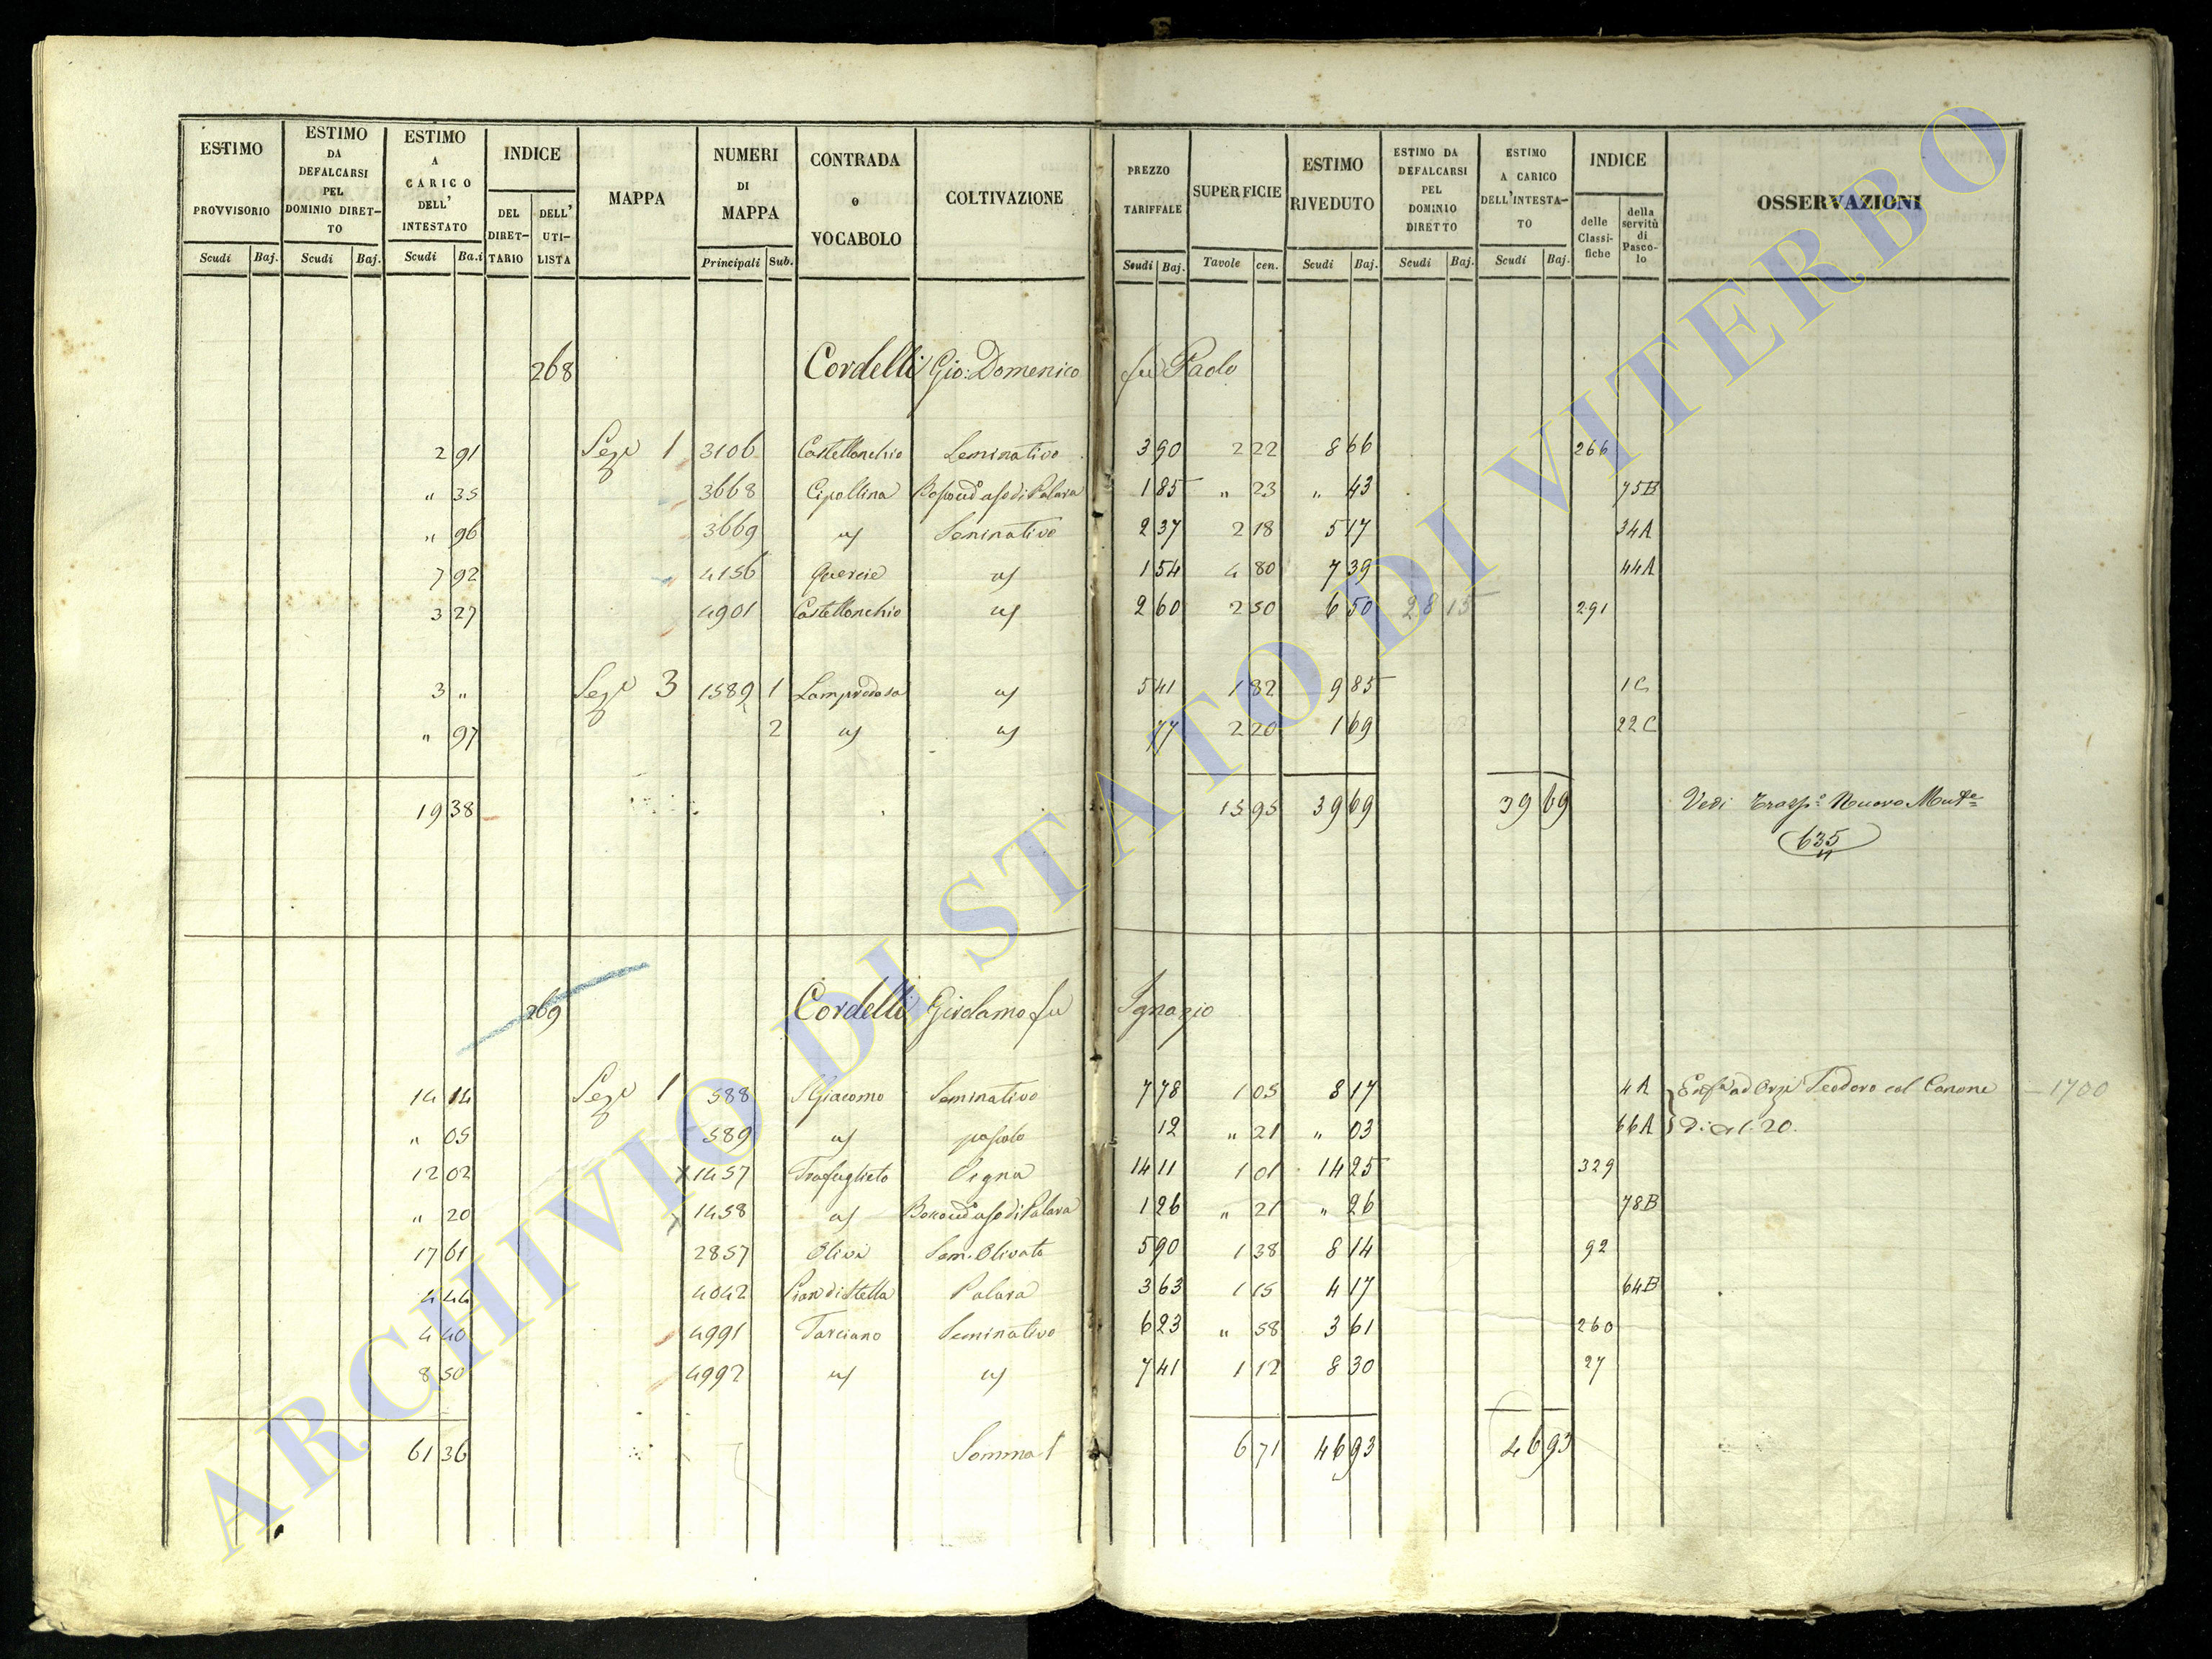 ESTIMO PROVVISORIO Scudi Baj.
ESTIMO DA DEFALCARSI PEL DOMINIO DIRET-TO Scudi Baj.
ESTIMO A CARICO DELL' INTESTATO Scudi Ba.i
INDICE DEL DIRET-TARIO DELL' UTI-LISTA
MAPPA
NUMERI DI MAPPA Principali Sub.
CONTRADA o VOCABOLO
COLTIVAZIONE
PREZZO TARIFFALE Scudi Baj.
SUPERFICIE Tavole cen.
ESTIMO RIVEDUTO Scudi Baj.
ESTIMO DA DEFALCARSI PEL DOMINIO DIRETTO Scudi Baj.
ESTIMO A CARICO DELL'INTESTA-TO Scudi Baj.
INDICE delle Classi-fiche della servitù di Pasco-lo
OSSERVAZIONI
268 Cordelli Gio: Domenico fu Paolo
2 91 Sez.e 1 3106 Castellonchio Seminativo 3 90 2 22 8 66 266
" 35 3668 Cipollina 1 85 " 23 " 43 75B
" 96 3669 " Seminativo 2 37 2 18 5 17 34A
7 92 4156 Quercie " 1 54 4 80 7 39 44A
3 27 4901 Castellonchio " 2 60 2 50 6 50 28 15 291
3 " Sez.e 3 1589 1 " 5 41 1 82 9 85 1C
" 97 2 " " 77 2 20 1 69 22C
19 38 15 95 39 69 39 69 Vedi Trasp.o Nuovo
635
269 Cordelli Girolamo fu Ignazio
14 14 Sez.e 1 588 S Giacomo Seminativo 7 78 1 05 8 17 4A Teodoro col Canone 1700
" 05 589 " pascolo 12 " 21 " 03 66A 20.
12 02 1457 Trafuglieto Vigna 14 11 1 01 14 25 329
" 20 1458 " 1 26 " 21 " 26 78B
17 61 2857 Oliva Sem. Olivato 5 90 1 38 8 14 92
4 44 4042 Pian di Stella Palara 3 63 1 15 4 17 64B
4 40 4991 Tarciano Seminativo 6 23 " 58 3 61 260
8 50 4992 " " 7 41 1 12 8 30 27
61 36 Somma 6 71 46 93 46 93
ARCHIVIO DI STATO DI VITERBO